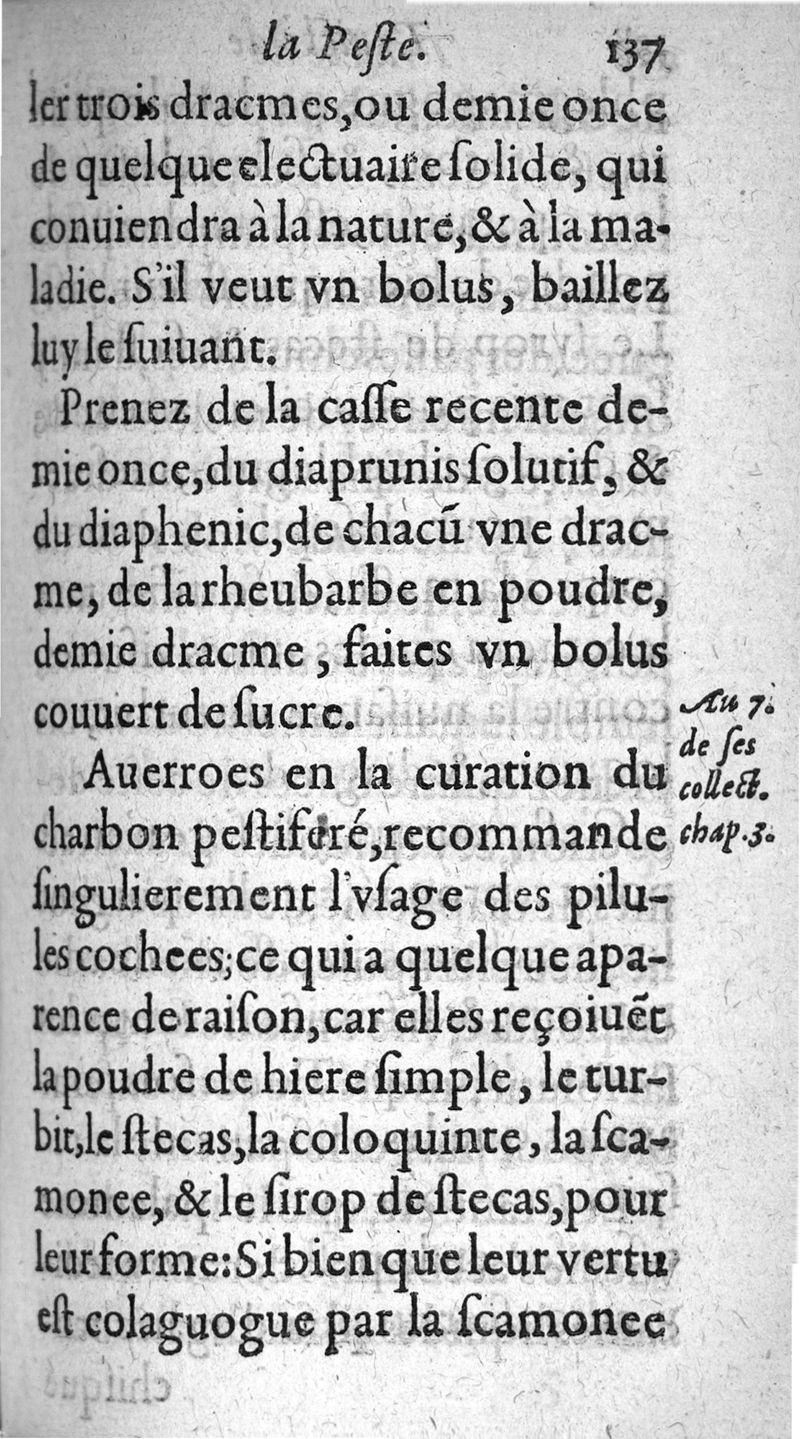 la Peſte. 137
ler trois dracmes, ou demie once
de quelque electuaire ſolide, qui
conuiendra à la nature, & à la ma-
ladie. S'il veut vn bolus, baillez
luy le ſuiuant.
Prenez de la caſſe recente de-
mie once, du diaprunis ſolutif, &
du diaphenic, de chacũ vne drac-
me, de la rheubarbe en poudre,
demie dracme, faites vn bolus
couuert de ſucre.
Auerroes en la curation du
charbon peſtiferé, recommande
ſingulierement l'vſage des pilu-
les cochees; ce qui a quelque apa-
rence de raiſon, car elles reçoiuẽt
la poudre de hiere ſimple, le tur-
bit, le ſtecas, la coloquinte, la ſca-
monee, & le ſirop de ſtecas, pour
leur forme: Si bien que leur vertu
eſt colaguogue par la ſcamonee
Au 7.
de ſes
collect.
chap. 3.